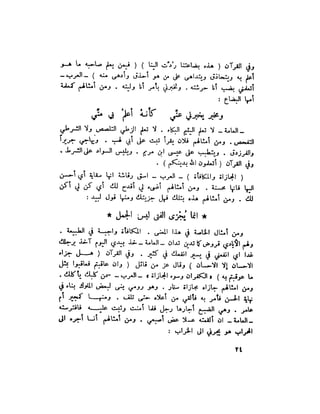 وفي القرآن ( هذه بضاعتنا ردت الينا ) ( فيمن يعلم صاحبه ما هو
أعلم به ويتحاذق ويتداهى على من هو أحذق وأدهى منه ) ــ العرب ــ
أتعلمني بضب أنا حرشته . وتخبرني بأمر أنا وليته . ومن أمثالهم كمعلمة
أمها البضاع :
ومخبر يخبرني عني كأنه أعلم بي مني
ــ العامة ــ لا تعلم اليتيم البكاء . لا تعلم الزطي التلصص ولا الشرطي
التفحص . ومن أمثالهم فلان يقرأ تبت على أبي لهب . ويهاجي جريراً
والفرزدق . ويتطبب على عيسى ابن مريم . ويلبس السواد على الشرط .
وفي القرآن ( أتعلمون الله بدينكم ) .
( المجازاة والمكافأة ) ــ العرب ــ اسق رقاش انها سقاية أي أحسن
اليها فانها محسنة . ومن أمثالهم أضيء لي أقدح لك أي كن لي أكن
لك . ومن أمثالهم هذه بتلك فهل جزيتك ومنها قول لبيد :
* انما يُجْزَى الفتى ليس الجمل *
ومن أمثال الخاصة في هذا المعنى . المكافأة واجبة في الطبيعة .
ولهم الأيادي قروض كما تدين تدان ــ العامة ــ خذ بيدي اليوم آخذ برجلك
غدا أي انفعني في يسير انفعك في كثير . وفي القرآن ( هل جزاء
الاحسان إلا الاحسان ) وقال عز من قائل ( وان عاقبتم فعاقبوا بمثل
ما عوقبتم به ) « الكفران وسوء المجازاة » ــ العرب ــ سمن كلبك يأكلك .
ومن امثالهم جزاه مجازاة سنمار . وهو رومي بنى لبعض الملوك بناء في
نهاية الحسن فأمر به فألقي من أعلاه حتى تلف . ومنها كمجير أم
عامر . وهي الضبع أجارها رجل فلما أمنت وثبت عليه فافترسته
ــ العامة ــ ان ألقمته عسلا عض أصبعي . ومن أمثالهم أنا أجره الى
المحراب هو يجرني الى الخراب :
٢٤